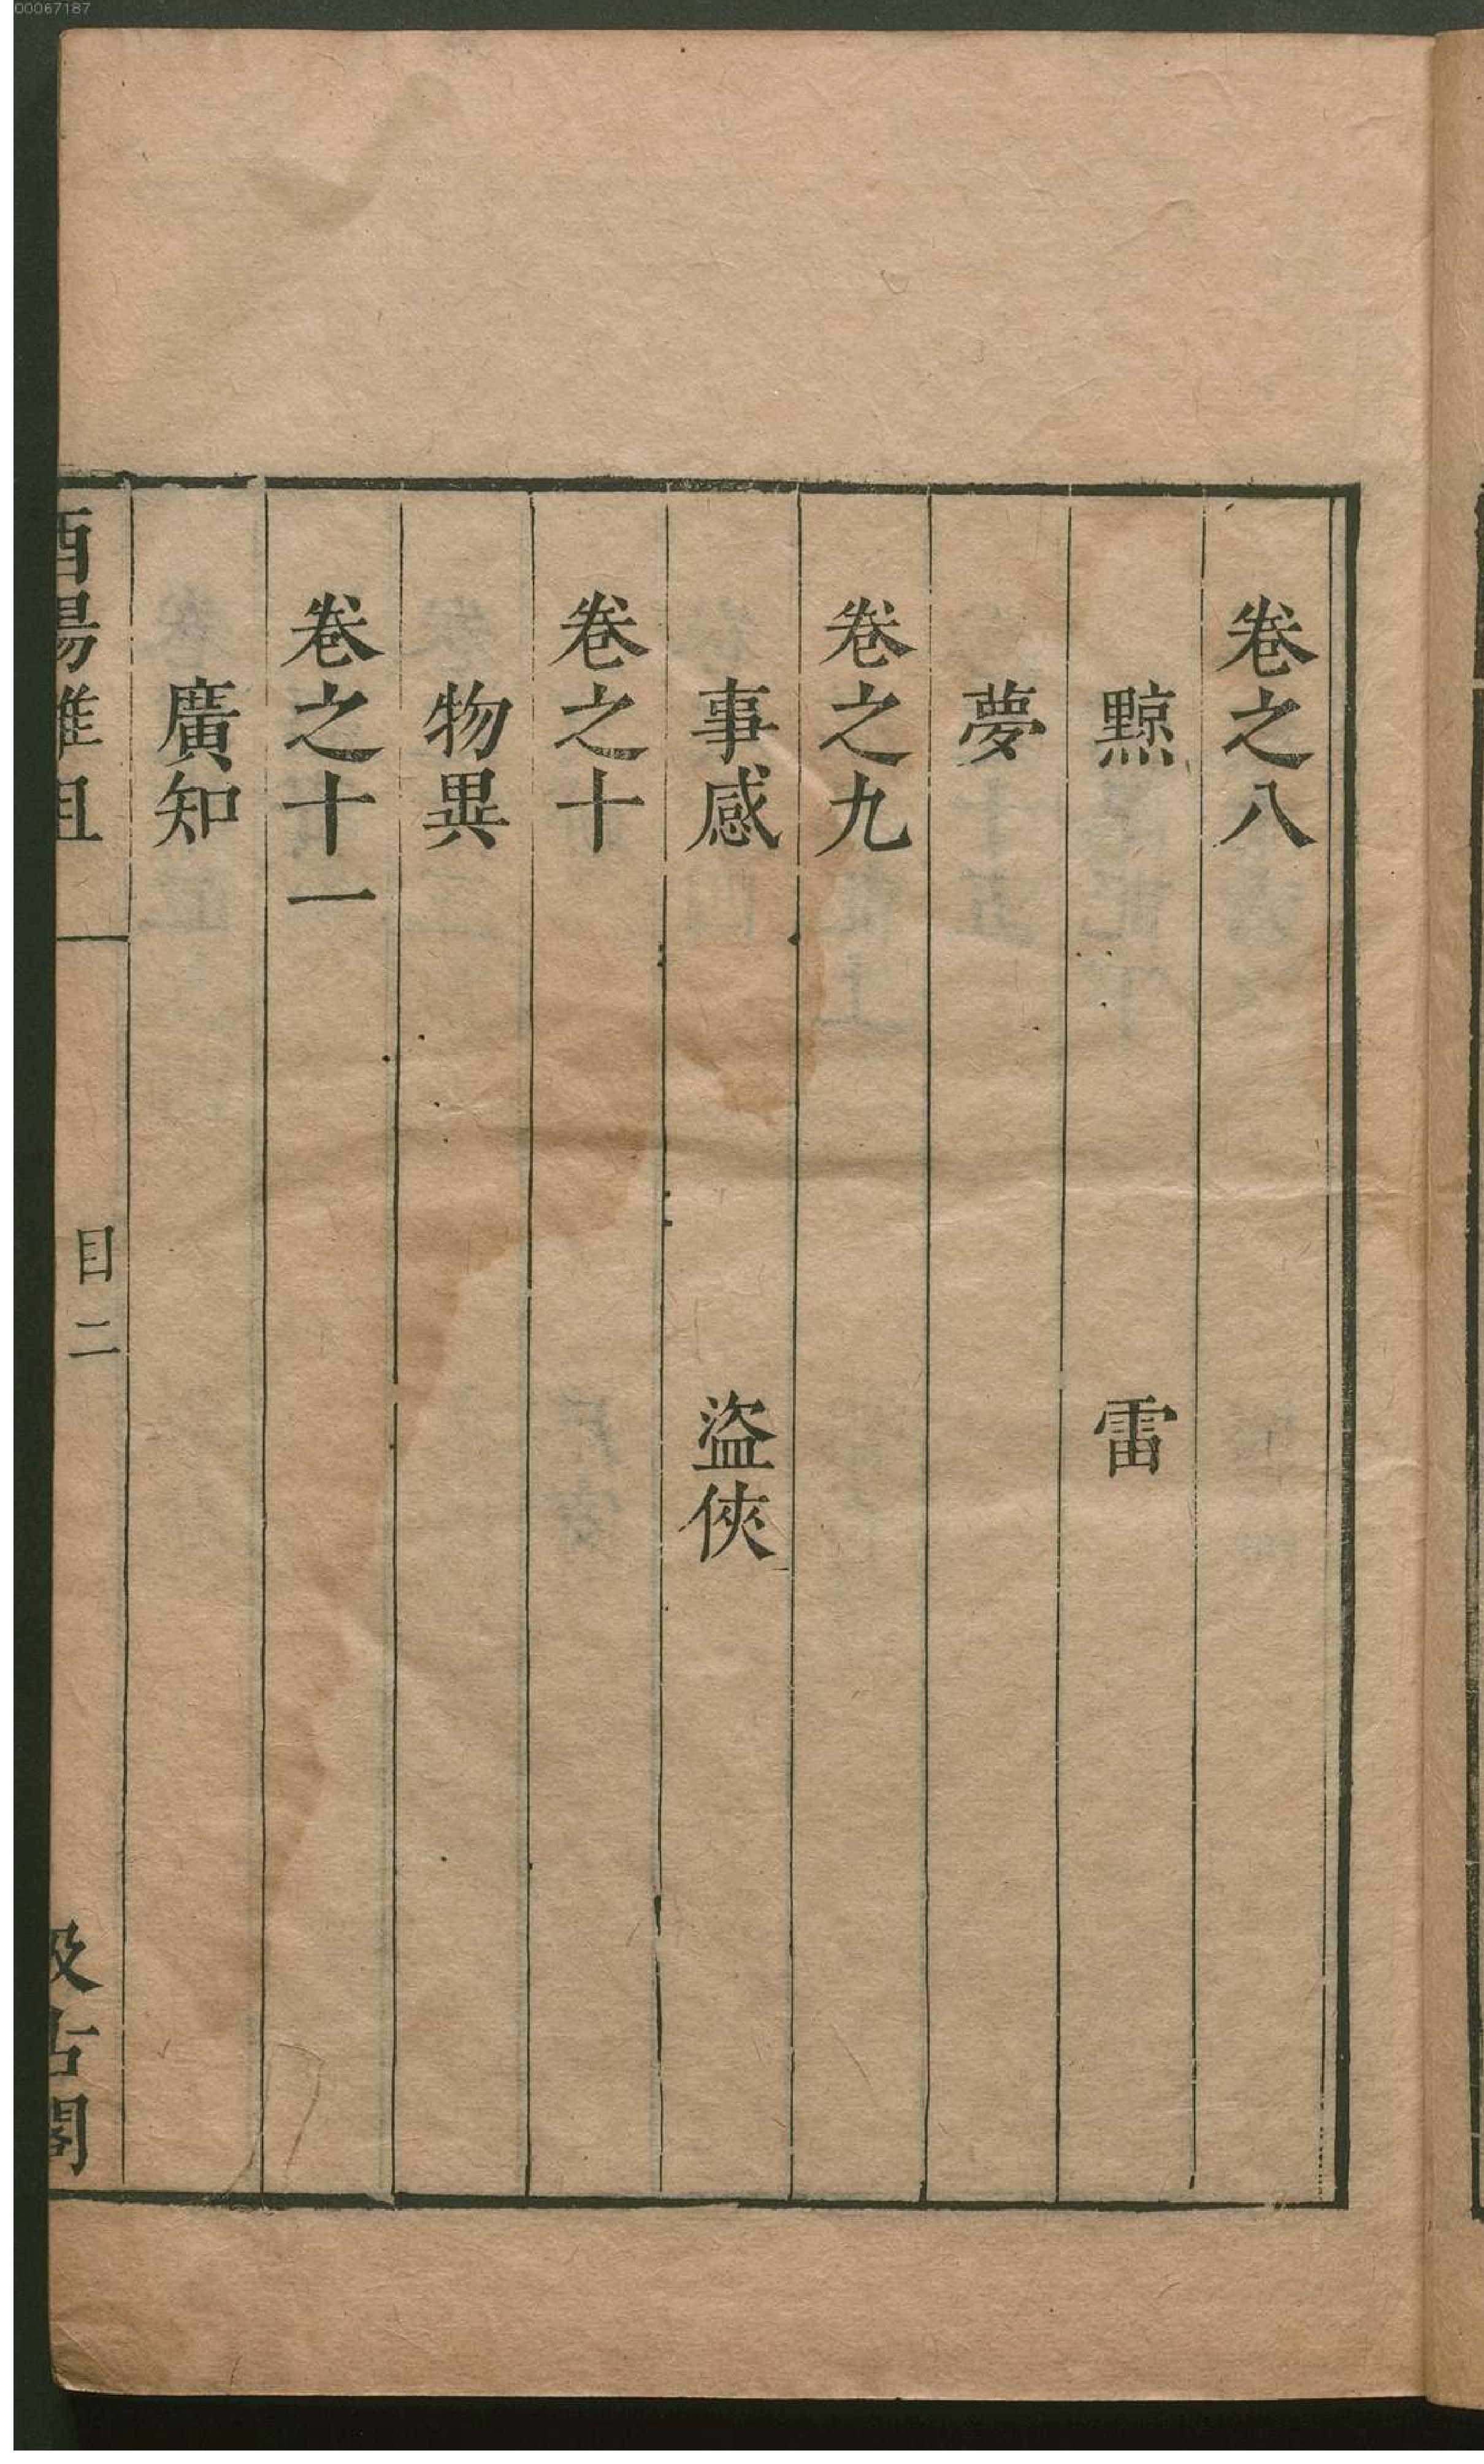 00067187
卷之八
黥 雷
夢
卷之九
事感 盜俠
卷之十
物異
卷之十一
廣知
酉陽雜俎 目二 汲古閣